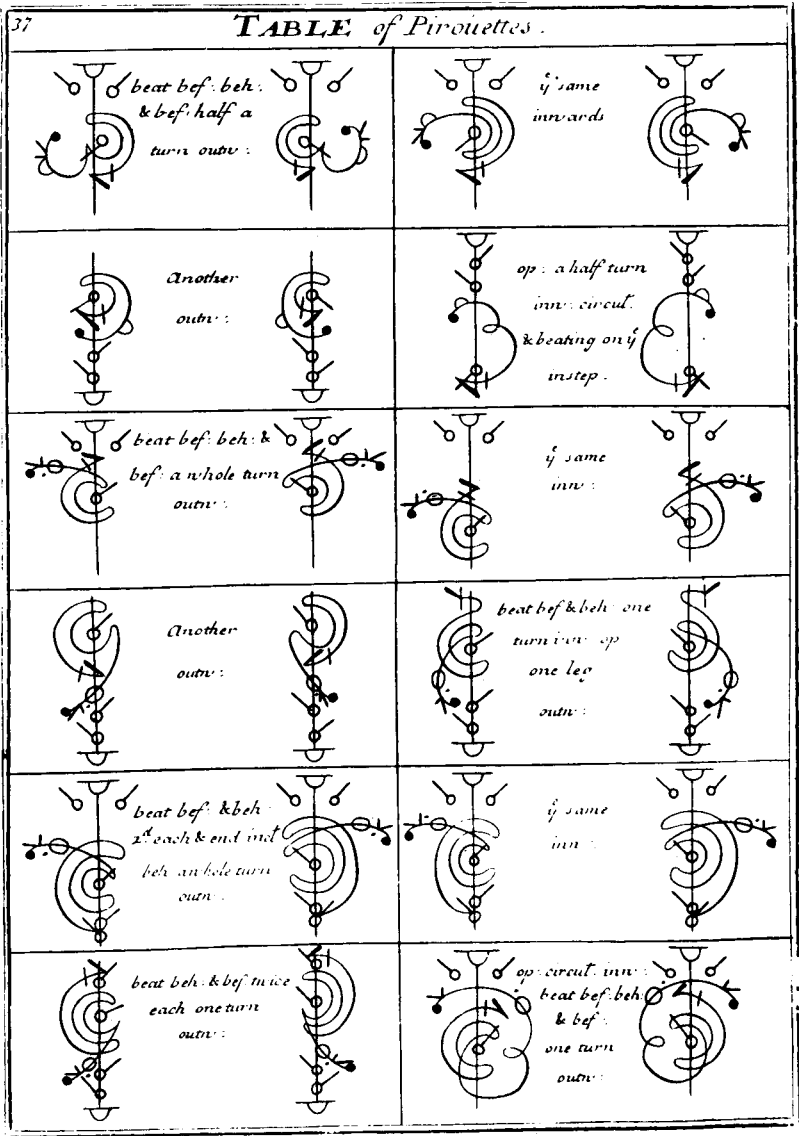 37
TABLE of Pirouettes.
beat bef: beh:
& bef: half a
turn outw:
yͤ same
inwards
Another
outw:
op: a half turn
inw: circul:
& beating on yͤ
instep.
beat bef: beh: &
bef: a whole turn
outw:
yͤ same
inw:
Another
outw:
beat bef & beh: one
turn inw: op
one leg
outw:
beat bef: & beh:
2ᵈ each & end
beh: a whole turn
outw:
yͤ same
inw:
beat beh: & bef: twice
each one turn
outw:
op: circul: inw:
beat bef: beh:
& bef:
one turn
outw: